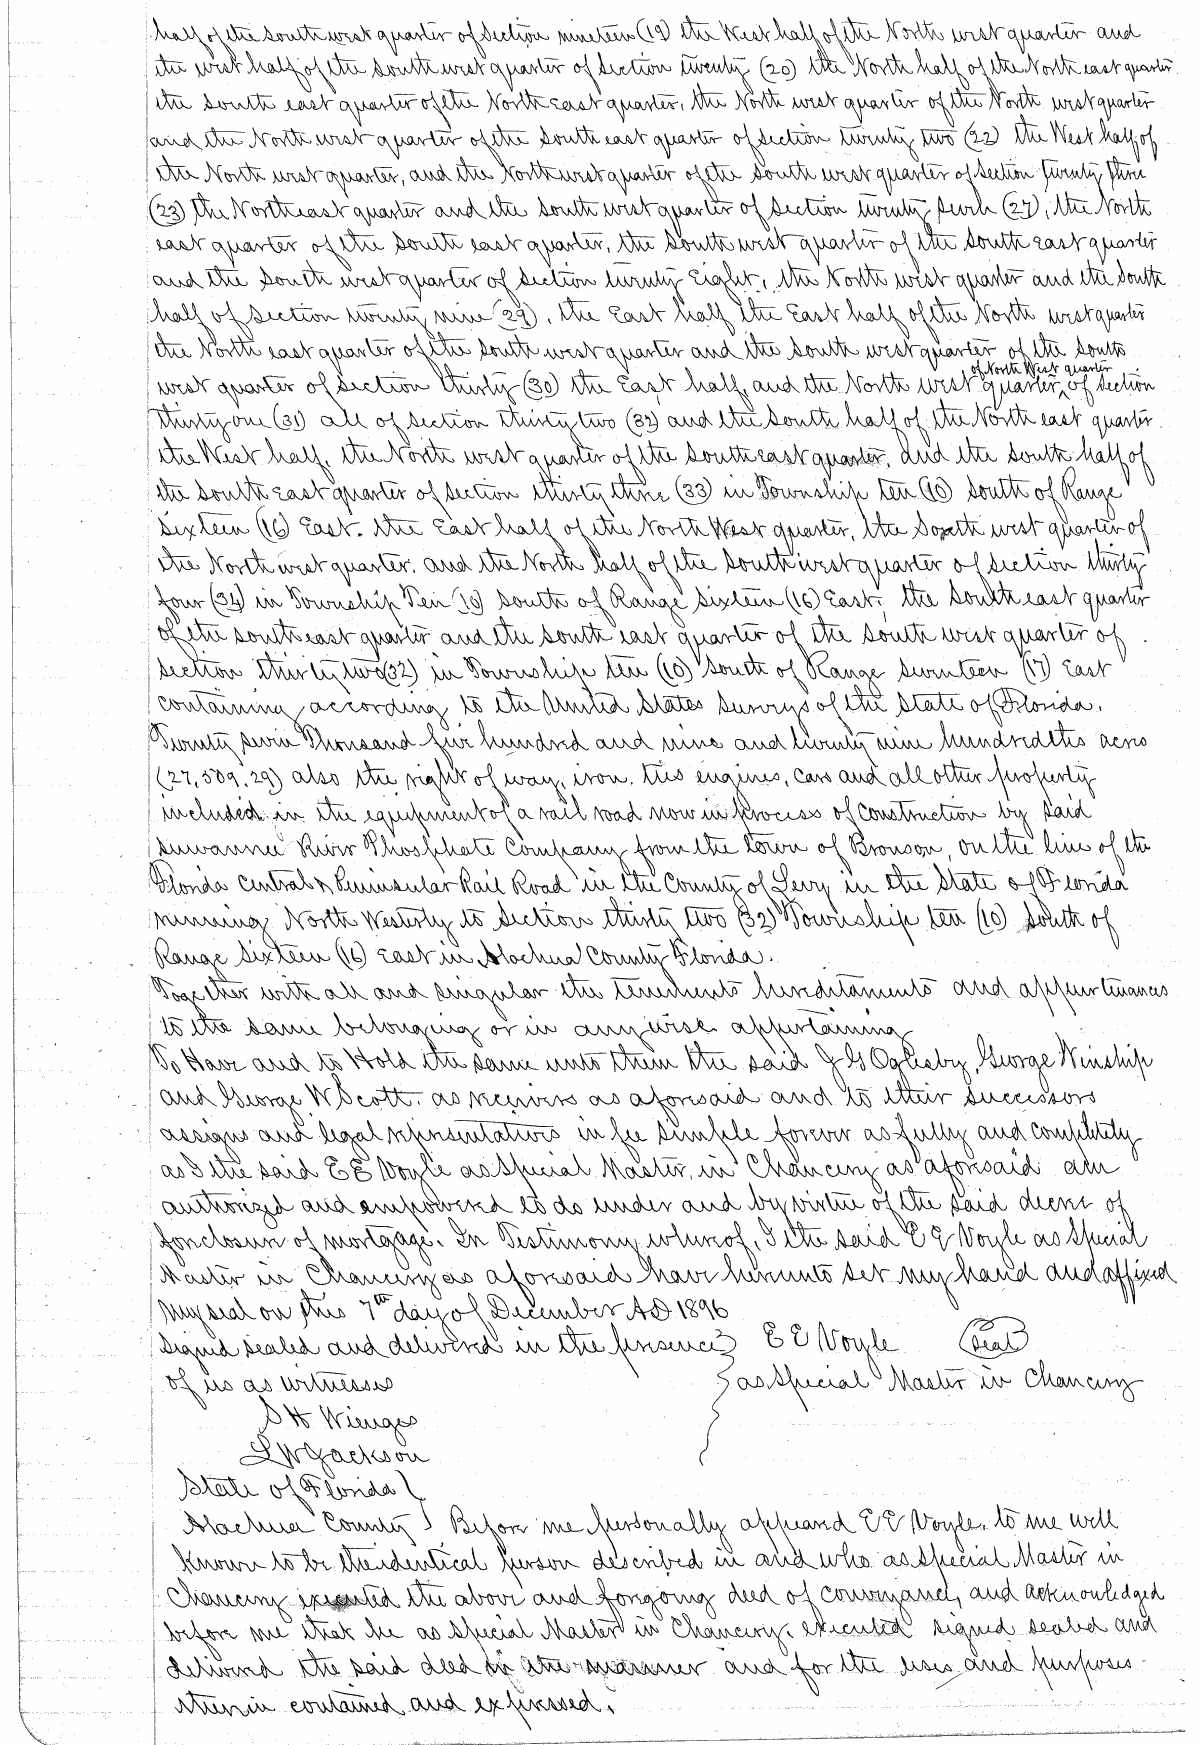 half of the south west quarter of Section nineteen (19) the West half of the North west quarter and
the west half of the South west quarter of Section twenty (20) the North half of the North east quarter
the South east quarter of the North East quarter, the North west quarter of the North west quarter
and the North west quarter of the South east quarter of section twenty two (22) the West half of
the North west quarter, and the North west quarter of the South west quarter of Section twenty three
(23) the North east quarter and the South west quarter of Section twenty Seven (27), the North
east quarter of the South east quarter, the South west quarter of the South East quarter
and the South west quarter of Section twenty Eight, the North west quarter and the South
half of Section twenty nine (29), the East half the East half of the North west quarter
the North east quarter of the South west quarter and the South west quarter of the South
west quarter of Section thirty (30) the East half, and the North west quarter of North West quarter of Section
thirty one (31) all of section thirty two (32) and the South half of the North east quarter
the West half, the North west quarter of the South east quarter, and the South half of
the South East quarter of Section thirty three (33) in Township ten (10) South of Range
Sixteen (16) East. the East half of the North West quarter, the South west quarter of
the North west quarter. and the North half of the South west quarter of Section thirty
four (34) in Township Ten (10) South of Range Sixteen (16) East, the South east quarter
of the South east quarter and the South east quarter of the South west quarter of
Section thirty two (32) in Township ten (10) South of Range Seventeen (17) East
containing according to the United States Surveys of the State of Florida.
Twenty seven Thousand five hundred and nine and twenty nine hundredths acres
(27,509.29) also the right of way, iron, ties engines, cars and all other property
included in the equipment of a rail road now in process of construction by said
Suwannee River Phosphate Company from the town of Bronson, on the line of the
Florida Central & Peninsular Rail Road in the County of Levy in the State of Florida
running North Westerly to Section thirty two (32) Township ten (10) South of
Range Sixteen (16) East in Alachua County Florida.
Together with all and singular the tenements hereditaments and appurtenances
to the same belonging or in anywise appertaining
To Have and to Hold the same unto them the said J G Oglesby, George Winship
and George W Scott. as receivers as aforesaid and to their successors
assigns and legal representatives in fee simple forever as fully and completely
as I the said E E Voyle as Special Master, in Chancery as aforesaid am
authorized and empowered to do under and by virtue of the said decree of
foreclosure of mortgage. In Testimony whereof, I the said E E Voyle as Special
Master in Chancery as aforesaid have hereunto set my hand and affixed
my seal on this 7th day of December A D 1896
Signed sealed and delivered in the presence E E Voyle (Seal)
of us as witnesses as Special Master in Chancery
S H Wienges
L W Jackson
State of Florida
Alachua County Before me personally appeared E E Voyle, to me well
known to be the identical person described in and who as Special Master in
Chancery executed the above and forgoing deed of conveyance, and acknowledged
before me that he as Special Master in Chancery, executed signed sealed and
delivered the said deed in the manner and for the uses and purposes
therein contained and expressed.